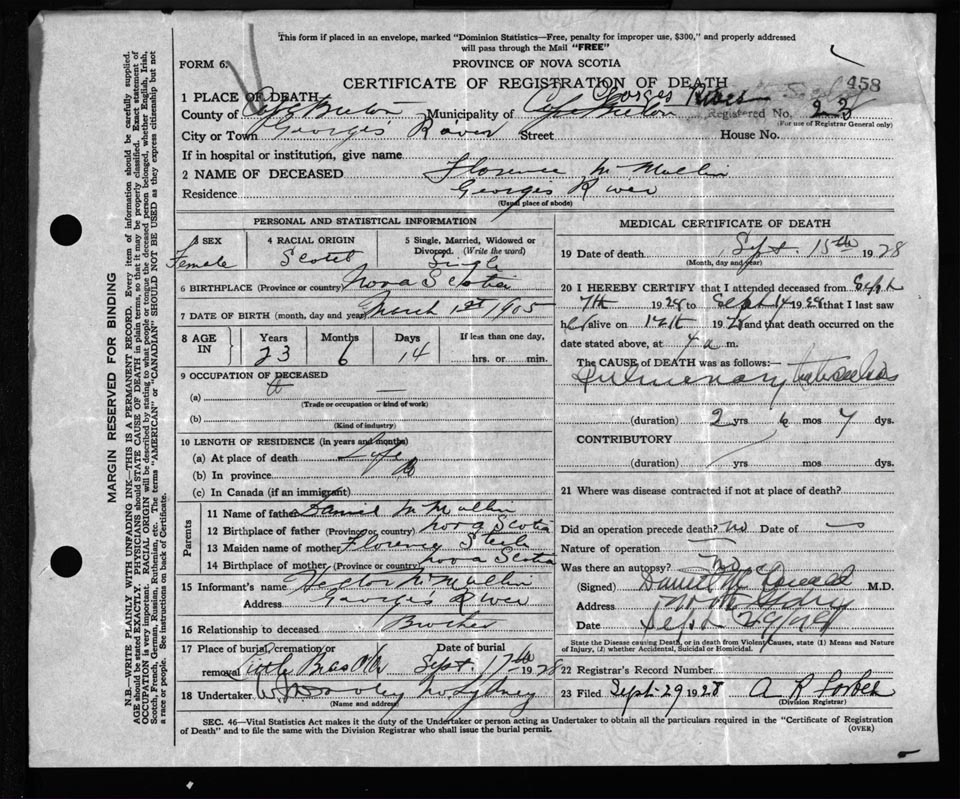 This form if placed in an envelope, marked "Dominion Statistics—Free, penalty for improper use, $300," and properly addressed
will pass through the Mail "FREE"
FORM 6.
PROVINCE OF NOVA SCOTIA
CERTIFICATE OF REGISTRATION OF DEATH
458
1 PLACE OF DEATH Georges River
County of Cape Breton Municipality of Cape Breton Registered No. 23
(For use of Registrar General only)
City or Town Georges River Street House No.
If in hospital or institution, give name
2 NAME OF DECEASED Florence McMullin
Residence Georges River
(Usual place of abode)
PERSONAL AND STATISTICAL INFORMATION
3 SEX Female
4 RACIAL ORIGIN Scotch
5 Single, Married, Widowed or Divorced. (Write the word) Single
6 BIRTHPLACE (Province or country) Nova Scotia
7 DATE OF BIRTH (month, day and year) March 1st 1905
8 AGE IN Years 23 Months 6 Days 14 If less than one day, hrs. or min.
9 OCCUPATION OF DECEASED
(a) —
(Trade or occupation or kind of work)
(b)
(Kind of industry)
10 LENGTH OF RESIDENCE (in years and months)
(a) At place of death Life
(b) In province
(c) In Canada (if an immigrant)
Parents
11 Name of father Daniel McMullin
12 Birthplace of father (Province or country) Nova Scotia
13 Maiden name of mother Florence Steele
14 Birthplace of mother (Province or country) Nova Scotia
15 Informant's name Hector McMullin
Address Georges River
16 Relationship to deceased Brother
17 Place of burial, cremation or removal Little Bras d'Or Date of burial Sept. 17th 1928
18 Undertaker No. Sydney
(Name and address)
MEDICAL CERTIFICATE OF DEATH
19 Date of death Sept. 15th 1928
(Month, day and year)
20 I HEREBY CERTIFY that I attended deceased from Sept
7th 1928 to Sept 14 1928 that I last saw
her alive on 14th 1928 and that death occurred on
date stated above, at 4 a m.
The CAUSE of DEATH was as follows:
Pulmonary tuberculosis
(duration) 2 yrs 6 mos 7 dys.
CONTRIBUTORY
(duration) yrs mos dys.
21 Where was disease contracted if not at place of death?
Did an operation precede death? no Date of —
Nature of operation —
Was there an autopsy? no
(Signed) Daniel McDonald M.D.
Address
Date Sept 29/28
State the Disease causing Death, or in death from Violent Causes, state (1) Means and Nature
of Injury, (2) whether Accidental, Suicidal or Homicidal.
22 Registrar's Record Number
23 Filed Sept. 29 1928 A R Forbes
(Division Registrar)
SEC. 46—Vital Statistics Act makes it the duty of the Undertaker or person acting as Undertaker to obtain all the particulars required in the "Certificate of Registration
of Death" and to file the same with the Division Registrar who shall issue the burial permit.
(OVER)
MARGIN RESERVED FOR BINDING
N.B.—WRITE PLAINLY WITH UNFADING INK—THIS IS A PERMANENT RECORD. Every item of information should be carefully supplied.
AGE should be stated EXACTLY. PHYSICIANS should STATE CAUSE OF DEATH in plain terms, so that it may be properly classified. Exact statement of
OCCUPATION is very important. RACIAL ORIGIN will be described by stating to what people or tongue the deceased person belonged, whether English, Irish,
Scotch, French, German, Russian, Ruthenian, etc. The terms "AMERICAN" or "CANADIAN" SHOULD NOT BE USED as they express citizenship but not
a race or people. See instructions on back of Certificate.